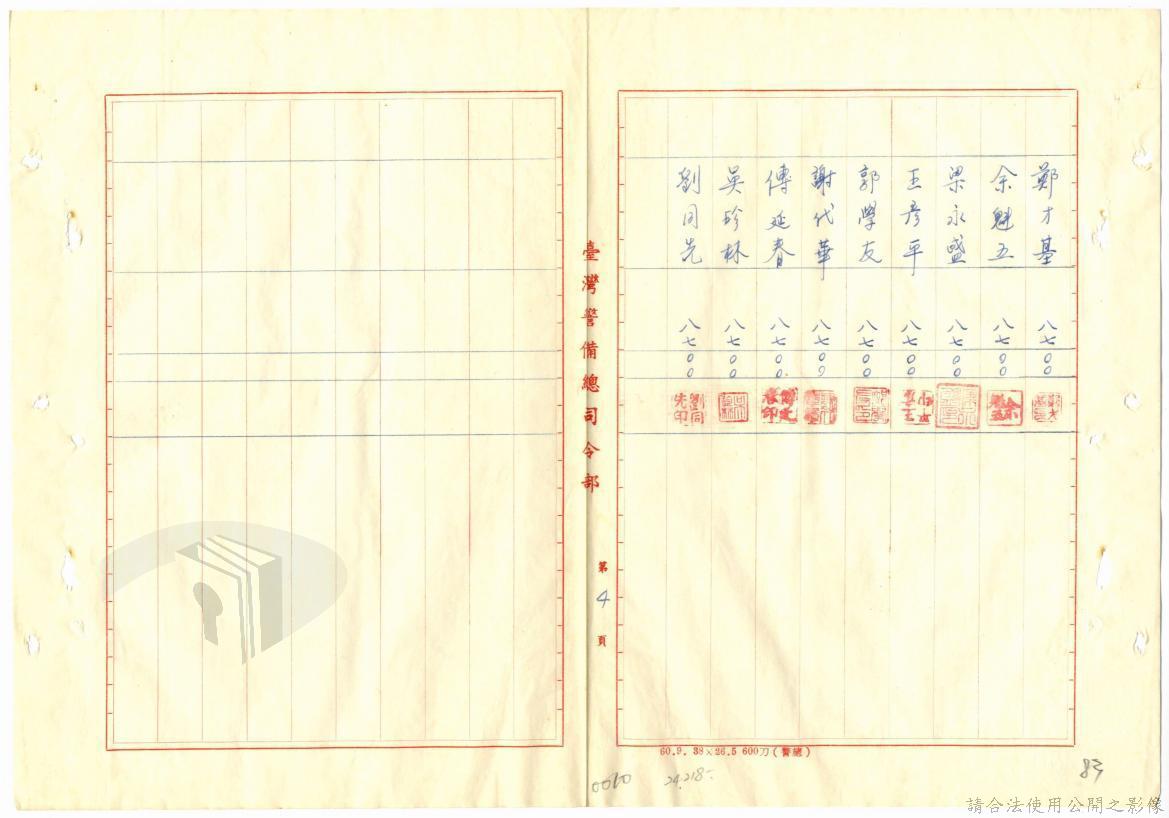 鄭才基 八七〇〇
余魁五 八七〇〇
梁永盛 八七〇〇
王彥平 八七〇〇
郭學友 八七〇〇
謝代華 八七〇〇
傅延春 八七〇〇
吳珍林 八七〇〇
劉同先 八七〇〇
劉同先印
臺灣警備總司令部
第4頁
60.9. 38×26.5 600刀(警總)
0060
24.218-
83
請合法使用公開之影像